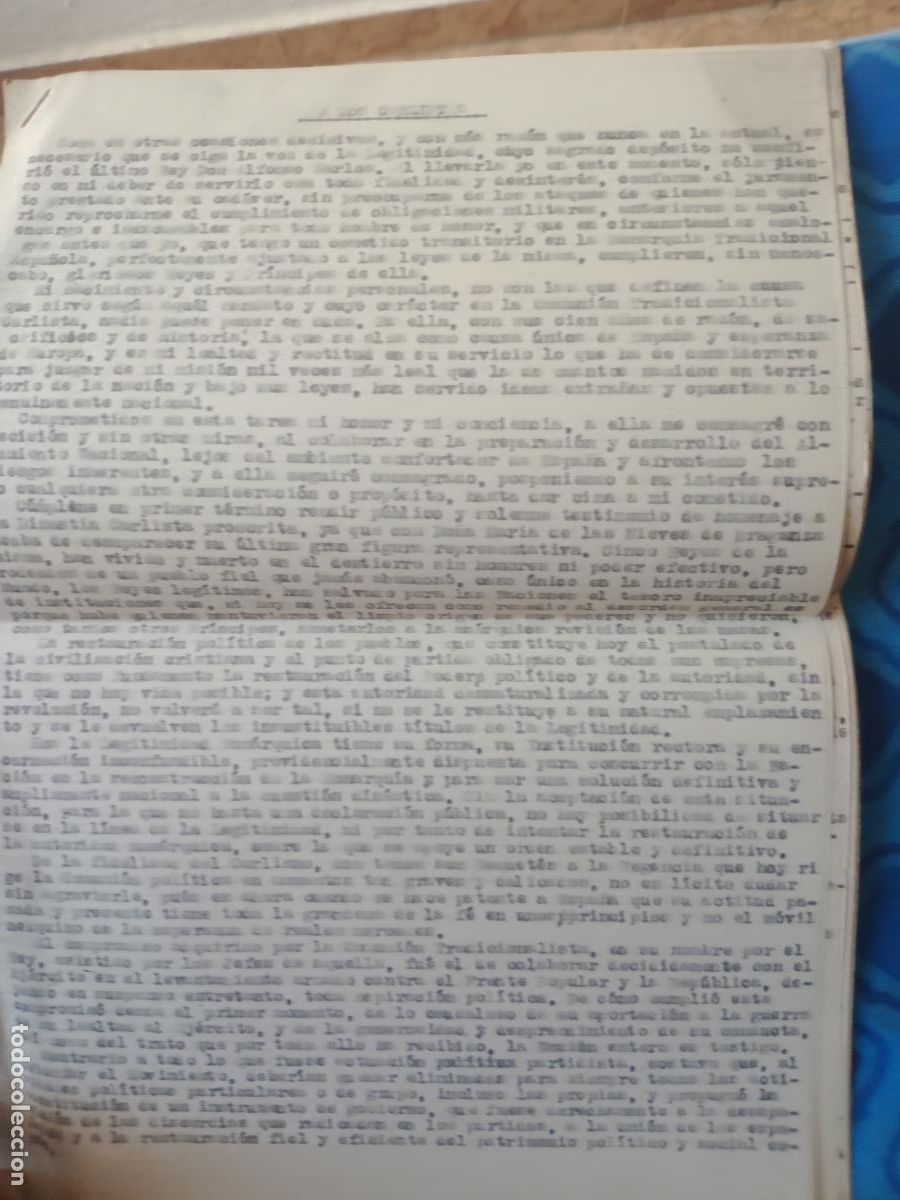 A LOS CARLISTAS
Como en otras ocasiones decisivas, y con más razón que nunca en la actual, es
necesario que se oiga la voz de la Legitimidad, cuyo sagrado depósito me confi-
rió el último Rey Don Alfonso Carlos. Al llevarla yo en este momento, sólo pien-
so en mi deber de servirlo con toda fidelidad y desinterés, conforme el juramen-
to prestado ante su cadáver, sin preocuparme de los ataques de quienes han que-
rido reprocharme el cumplimiento de obligaciones militares, anteriores a aquel
encargo e inexcusables para todo hombre de honor, y que en circunstancias análo-
gas antes que yo, que tengo un cometido transitorio en la Monarquía Tradicional
Española, perfectamente ajustado a las leyes de la misma, cumplieron, sin menos-
cabo, gloriosos Reyes y Príncipes de ella.
Mi nacimiento y circunstancias personales, no son las que definen la causa
que sirvo según aquél mandato y cuyo carácter en la Comunión Tradicionalista
Carlista, nadie puede poner en duda. Es ella, con sus cien años de razón, de sa-
crificios y de historia, la que se alza como causa única de España y esperanza
de Europa, y es mi lealtad y rectitud en su servicio lo que ha de considerarse
para juzgar de mi misión mil veces más leal que la de cuantos nacidos en terri-
torio de la nación y bajo sus leyes, han servido ideas extrañas y opuestas a lo
genuinamente nacional.
Comprometidos en esta tarea mi honor y mi conciencia, a ella me consagré con
decisión y sin otras miras, al colaborar en la preparación y desarrollo del Al-
zamiento Nacional, lejos del ambiente confortador de España y afrontando los
riesgos inherentes, y a ella seguiré consagrado, posponiendo a su interés supre-
mo cualquiera otra consideración o propósito, hasta dar cima a mi cometido.
Cúmpleme en primer término rendir público y solemne testimonio de homenaje a
la Dinastía Carlista proscrita, ya que con Doña María de las Nieves de Braganza
acaba de desaparecer su última gran figura representativa. Cinco Reyes de la
misma, han vivido y muerto en el destierro sin honores ni poder efectivo, pero
rodeados de un pueblo fiel que jamás abandonó, caso único en la historia del
Mundo, los Reyes legítimos, han salvado para las Naciones el tesoro inapreciable
de instituciones que, si hoy se les ofrecen como remedio al desorden general es
porque hubo quienes mantuvieron el limpio origen de sus poderes y no quisieron,
como tantos otros Príncipes, someterlos a la anárquica revisión de las masas.
La restauración política de los pueblos, que constituye hoy el postulado de
la civilización cristiana y el punto de partida obligado de todas sus empresas,
tiene como fundamento la restauración del Poder político y de la autoridad, sin
la que no hay vida posible; y esta autoridad desnaturalizada y corrompida por la
revolución, no volverá a ser tal, si no se le restituye a su natural emplazamien
to y se le devuelven los insustituibles títulos de la Legitimidad.
Hoy la Legitimidad Monárquica tiene su forma, su Institución rectora y su en-
carnación inconfundible, providencialmente dispuesta para concurrir con la Na-
ción en la reconstrucción de la Monarquía y para dar una solución definitiva y
ampliamente nacional a la cuestión dinástica. Sin la aceptación de esta situa-
ción, para la que no basta una declaración pública, no hay posibilidad de situar
se en la línea de la Legitimidad, ni por tanto de intentar la restauración de
la autoridad monárquica, sobre la que se apoye un orden estable y definitivo.
De la fidelidad del Carlismo, que todos sus Requetés a la Regencia que hoy ri
ge la Comunión política en momentos tan graves y delicados, no es lícito dudar
sin agraviarle, pués es ahora cuando se hace patente a España que su actitud pa-
sada y presente tiene toda la grandeza de la fé en unos principios y no el móvil
mezquino de la esperanza de reales mercedes.
El compromiso adquirido por la Comunión Tradicionalista, en su nombre por el
Rey, asistido por los Jefes de aquella, fué el de colaborar decididamente con el
Ejército en el levantamiento armado contra el Frente Popular y la República, de-
jando en suspenso entretanto, toda aspiración política. De cómo cumplió este
compromiso desde el primer momento, de lo caudaloso de su aportación a la guerra
su lealtad al Ejército, y de la generosidad y desprendimiento de su conducta,
así como del trato que por todo ello ha recibido, la Nación entera es testigo.
Contrario a todo lo que fuese actuación política partidista, sostuvo que, al
iniciar el Movimiento, deberían quedar eliminadas para siempre todas las acti-
vidades políticas particulares o de grupo, incluso las propias, y propugnó la
constitución de un instrumento de gobierno, que fuese derechamente a la desapa-
rición de las discordias que radicaban en los partidos, a la unión de los espa-
ñoles y a la restauración fiel y eficiente del patrimonio político y social es-
todocoleccion